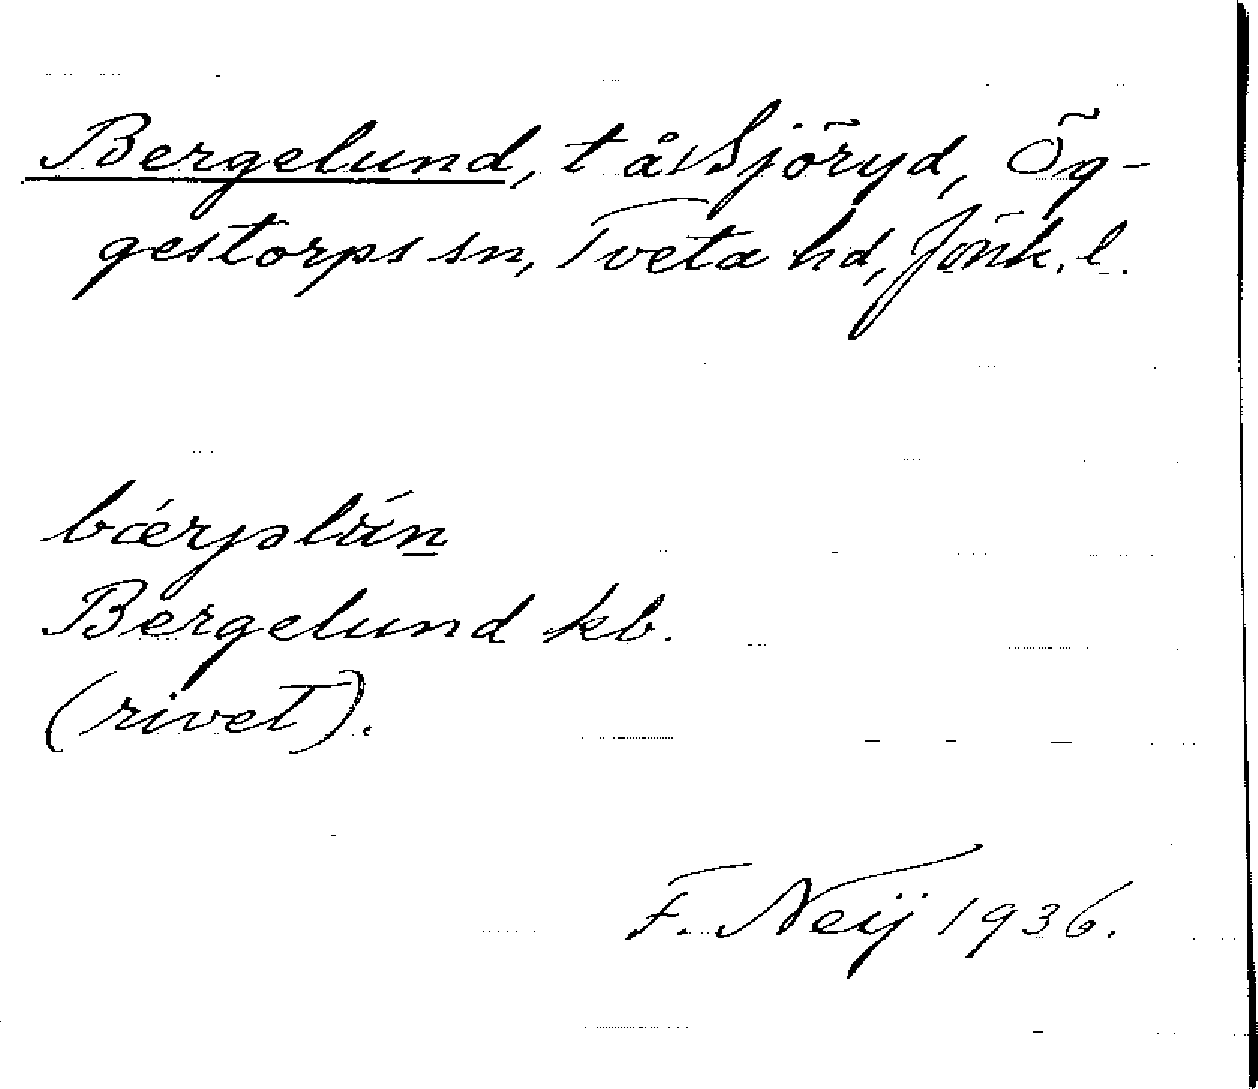 Bergelund, t å Sjöryd, Ög-
gestorps sn, Tveta hd, Jönk. l.
Bergelund kb.
(rivet).
F. Neij 1936.